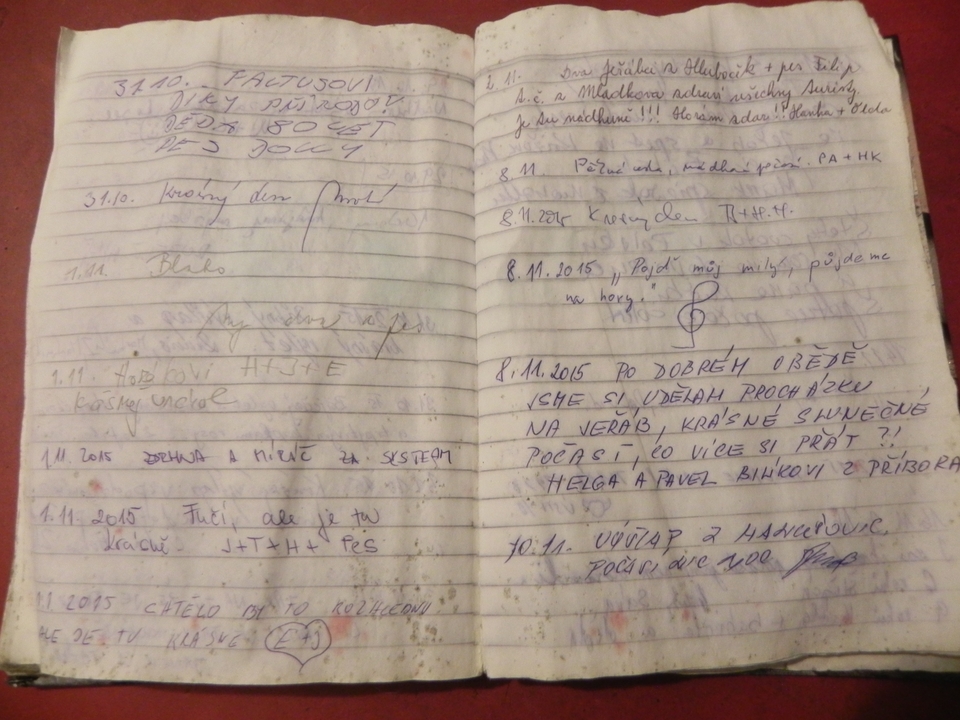 31.10. FALTUSOVI
DÍKY PŘÍRODO!
DĚDA 80 LET
PES DOLLY
31.10. Krásný den
1.11. Blako
pes
1.11. H+J+E
1.11.2015 A MÍŠIČ ZA SESTEAM
1.11.2015 Fučí, ale je tu
krásně. J+T+H+ PES
1.11 2015 CHTĚLO BY TO ROZHLEDNU
ALE JE TU KRÁSNĚ E+J
2.11. Dva Jeřábci z Hlubočik + pes Filip
a.č. z Mladkova zdraví všechny turisty.
Je tu nádherně!!! Horám zdar!! Hanka + Olda
8.11. PA + HK
8.11.2015 Krásný den + H.H.
8.11.2015 „Pojď můj milý, půjdeme
na hory."
8.11.2015 PO DOBRÉM OBĚDĚ
JSME SI UDĚLALI PROCHÁZKU
NA JEŘÁB, KRÁSNÉ SLUNEČNÉ
POČASÍ, CO VÍCE SI PŘÁT ?!
HELGA A PAVEL BILKOVI Z PŘÍBORA
10.11. VÝŠLAP Z HANUŠOVIC
POČASÍ NIC MOC